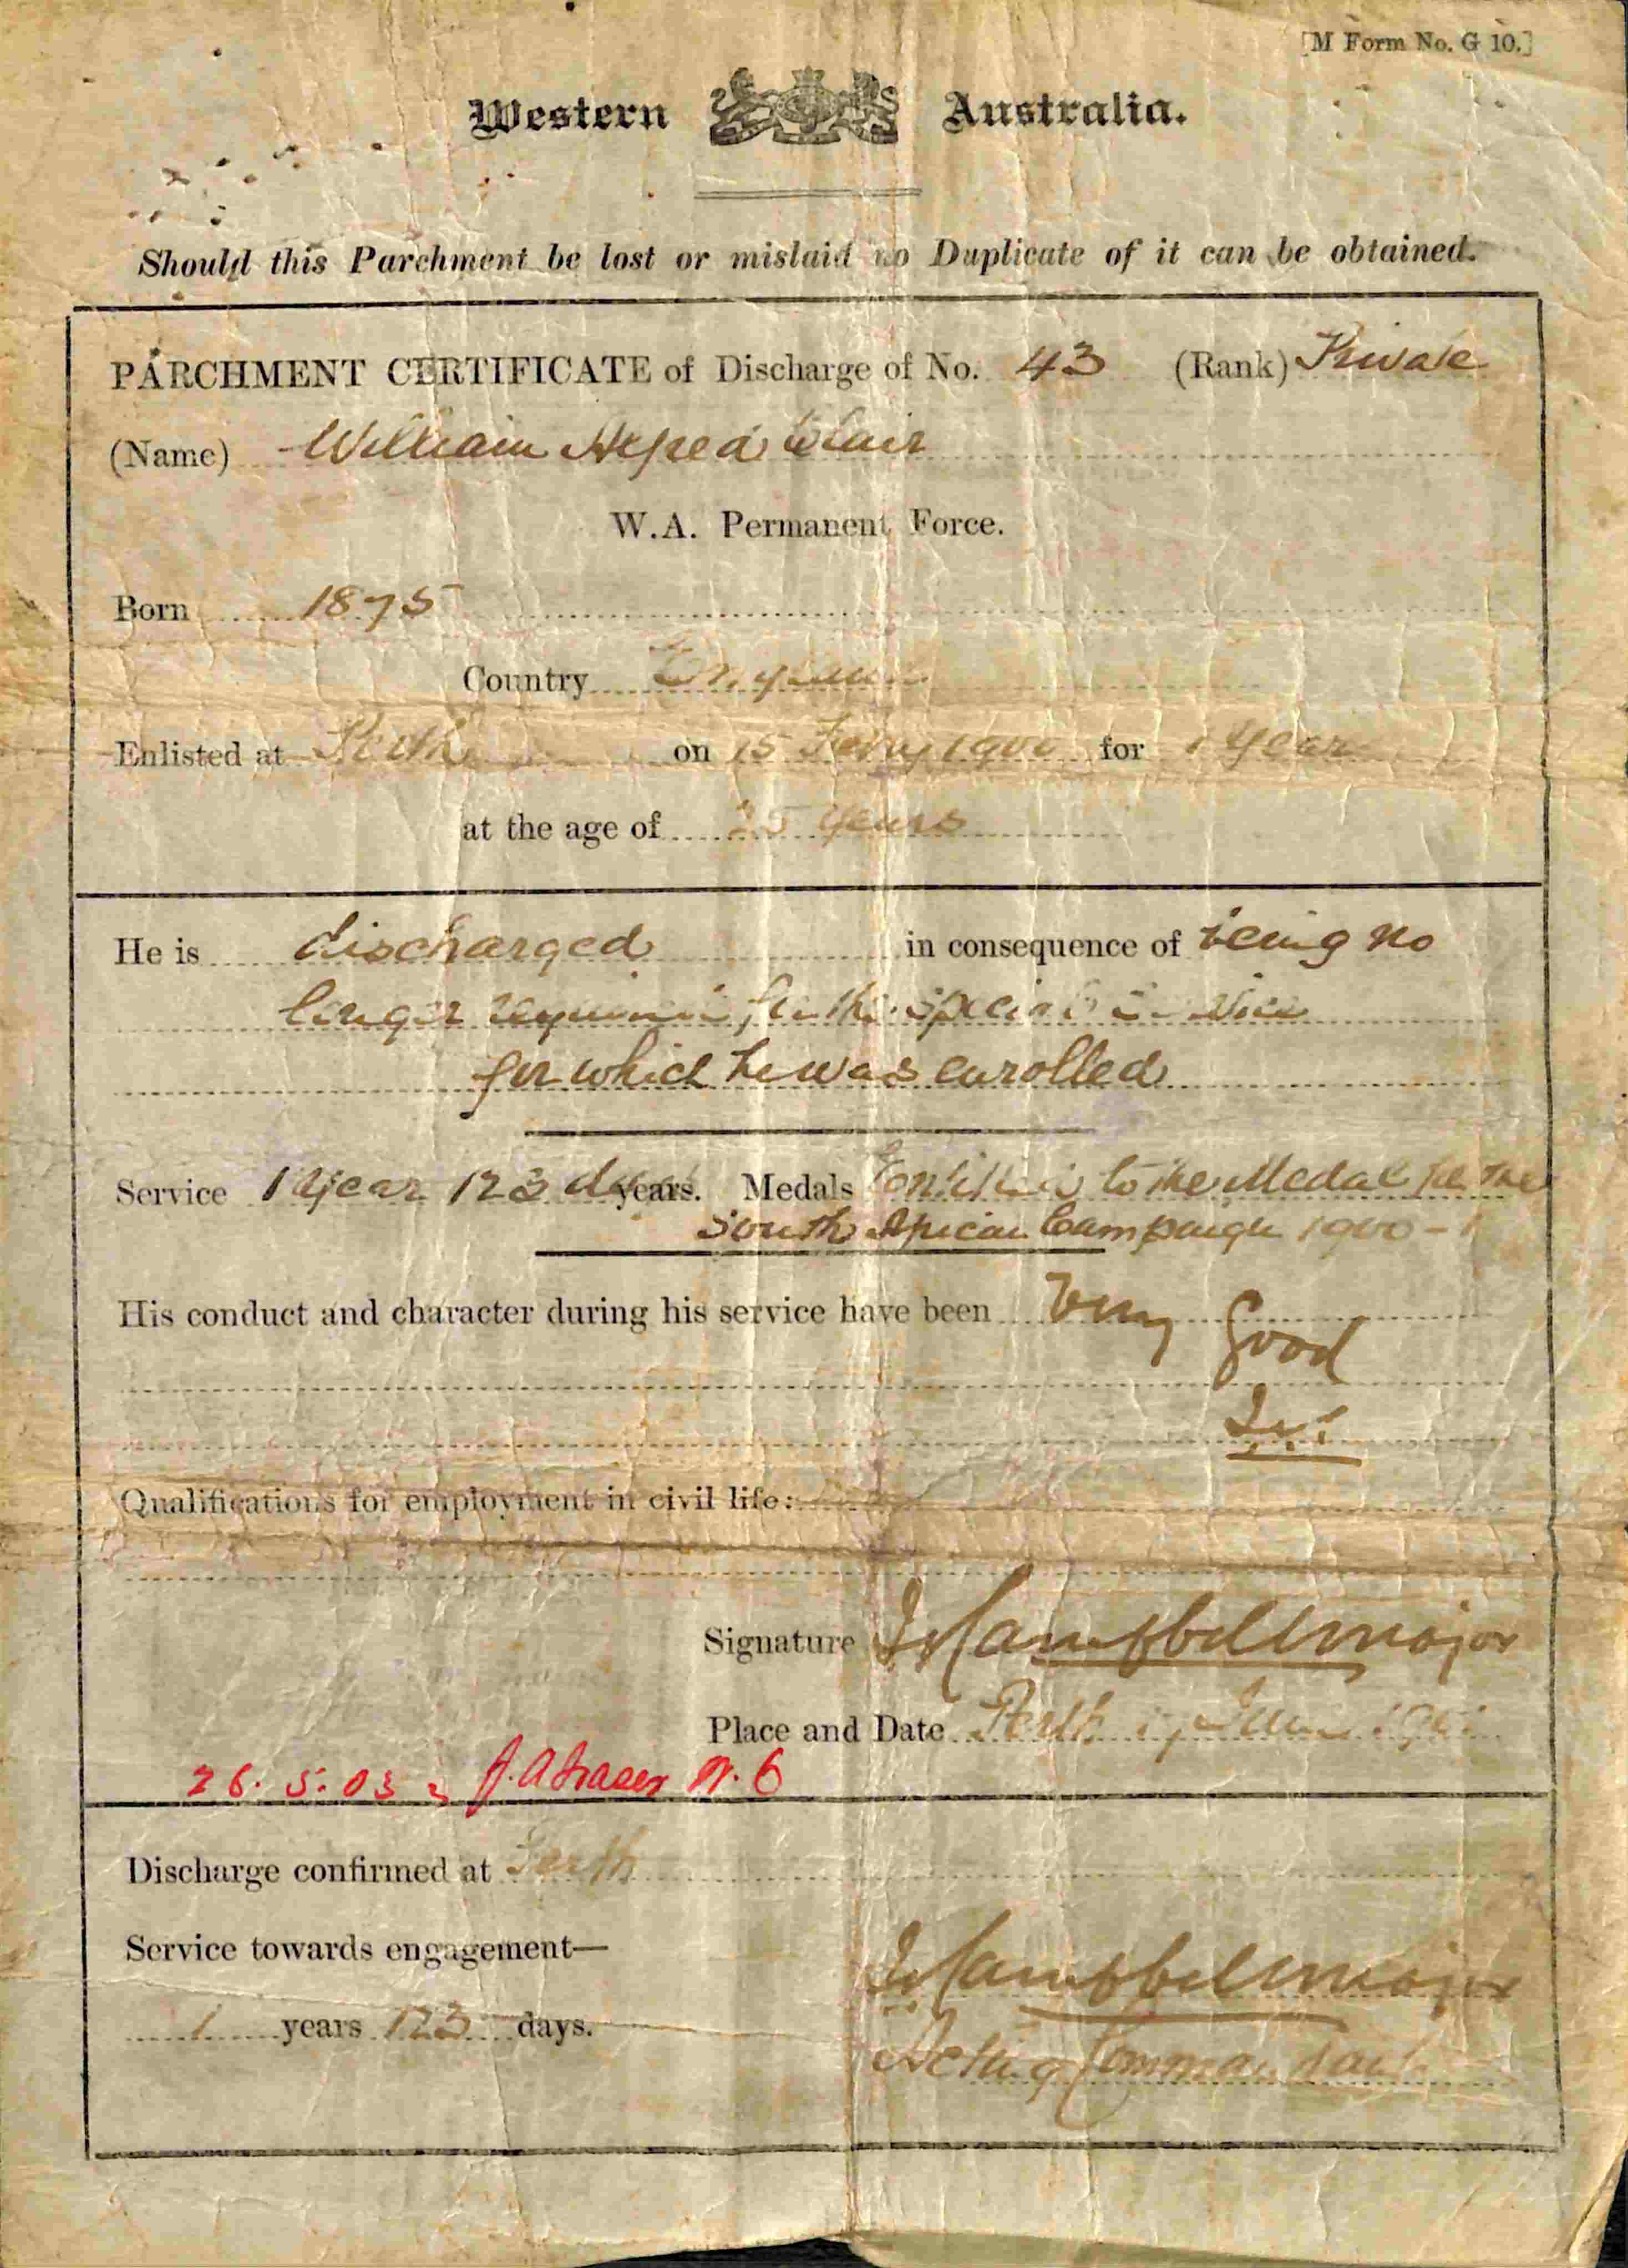 [M Form No. G 10.]
Western Australia.
Should this Parchment be lost or mislaid no Duplicate of it can be obtained.
PARCHMENT CERTIFICATE of Discharge of No. 43 (Rank) Private
(Name) William Alfred Blair
W.A. Permanent Force.
Born 1875
Country England
Enlisted at Perth on 15 Febry 1900 for 1 Year
at the age of 25 years
He is discharged in consequence of being no
longer required for the special service
for which he was enrolled
Service 1 year 123 days years. Medals Entitled to the Medal for the
South African Campaign 1900-1
His conduct and character during his service have been Very
Good
Qualifications for employment in civil life:
Signature Campbell Major
Place and Date Perth 17 June 1901
26.5.03 J. A Fraser
Discharge confirmed at Perth
Service towards engagement—
Campbell Major
1 years 123 days.
Acting Commandant